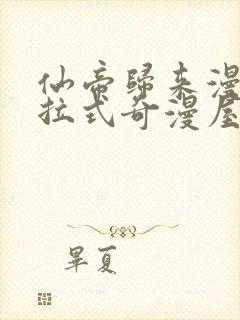 仙帝歸來漫
拉式奇漫屋
畢夏